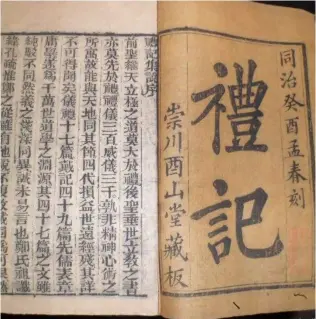 同治癸酉孟春刻
禮記
崇川酉山堂藏板
禮記集說序
前聖繼天立極之道莫大於禮後聖垂世立教之書
亦莫先於禮禮儀三百威儀三千孰非精神心術之
所寓故能與天地同其節四代損益世遠經殘其詳
不可得聞矣儀禮十七篇戴記四十九篇先儒表章
庸學遂爲千萬世道學之淵源其四十七篇之文雖
純駁不同然義之淺深同異誠未易言也鄭氏祖讖
緯孔疏惟鄭之從雖有他說不復收載固爲可恨然